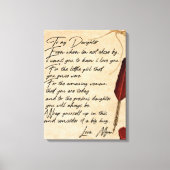 To my Daughter
Even when I'm not close by
I want you to know I love you
For the little girl that
you once were
For the amazing woman
that you are today
and to the precious daughter
you will always be
Wrap yourself up in this
and consider it a big hug
Love, Mom